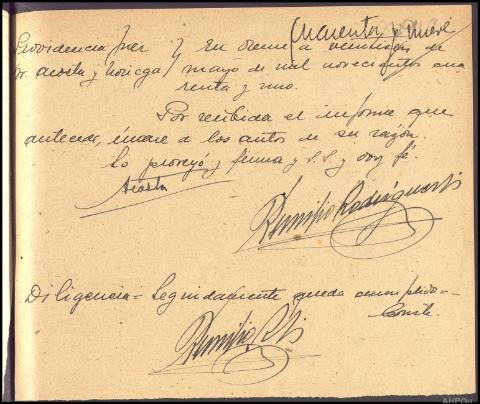 Cuarenta y nueve
Providencia Juez } En Orense a veintiseis de
Sr. Acosta y Noriega / mayo de mil novecientos cua
renta y uno.
Por recibida el informe que
antecede, únase a los autos de su razón.
Lo proveyó y firma y S.S. y doy fé.
Acosta
Remigio Rodríguez
Diligencia = Seguidamente queda cumplido =
Conste.
Remigio
AHPOu